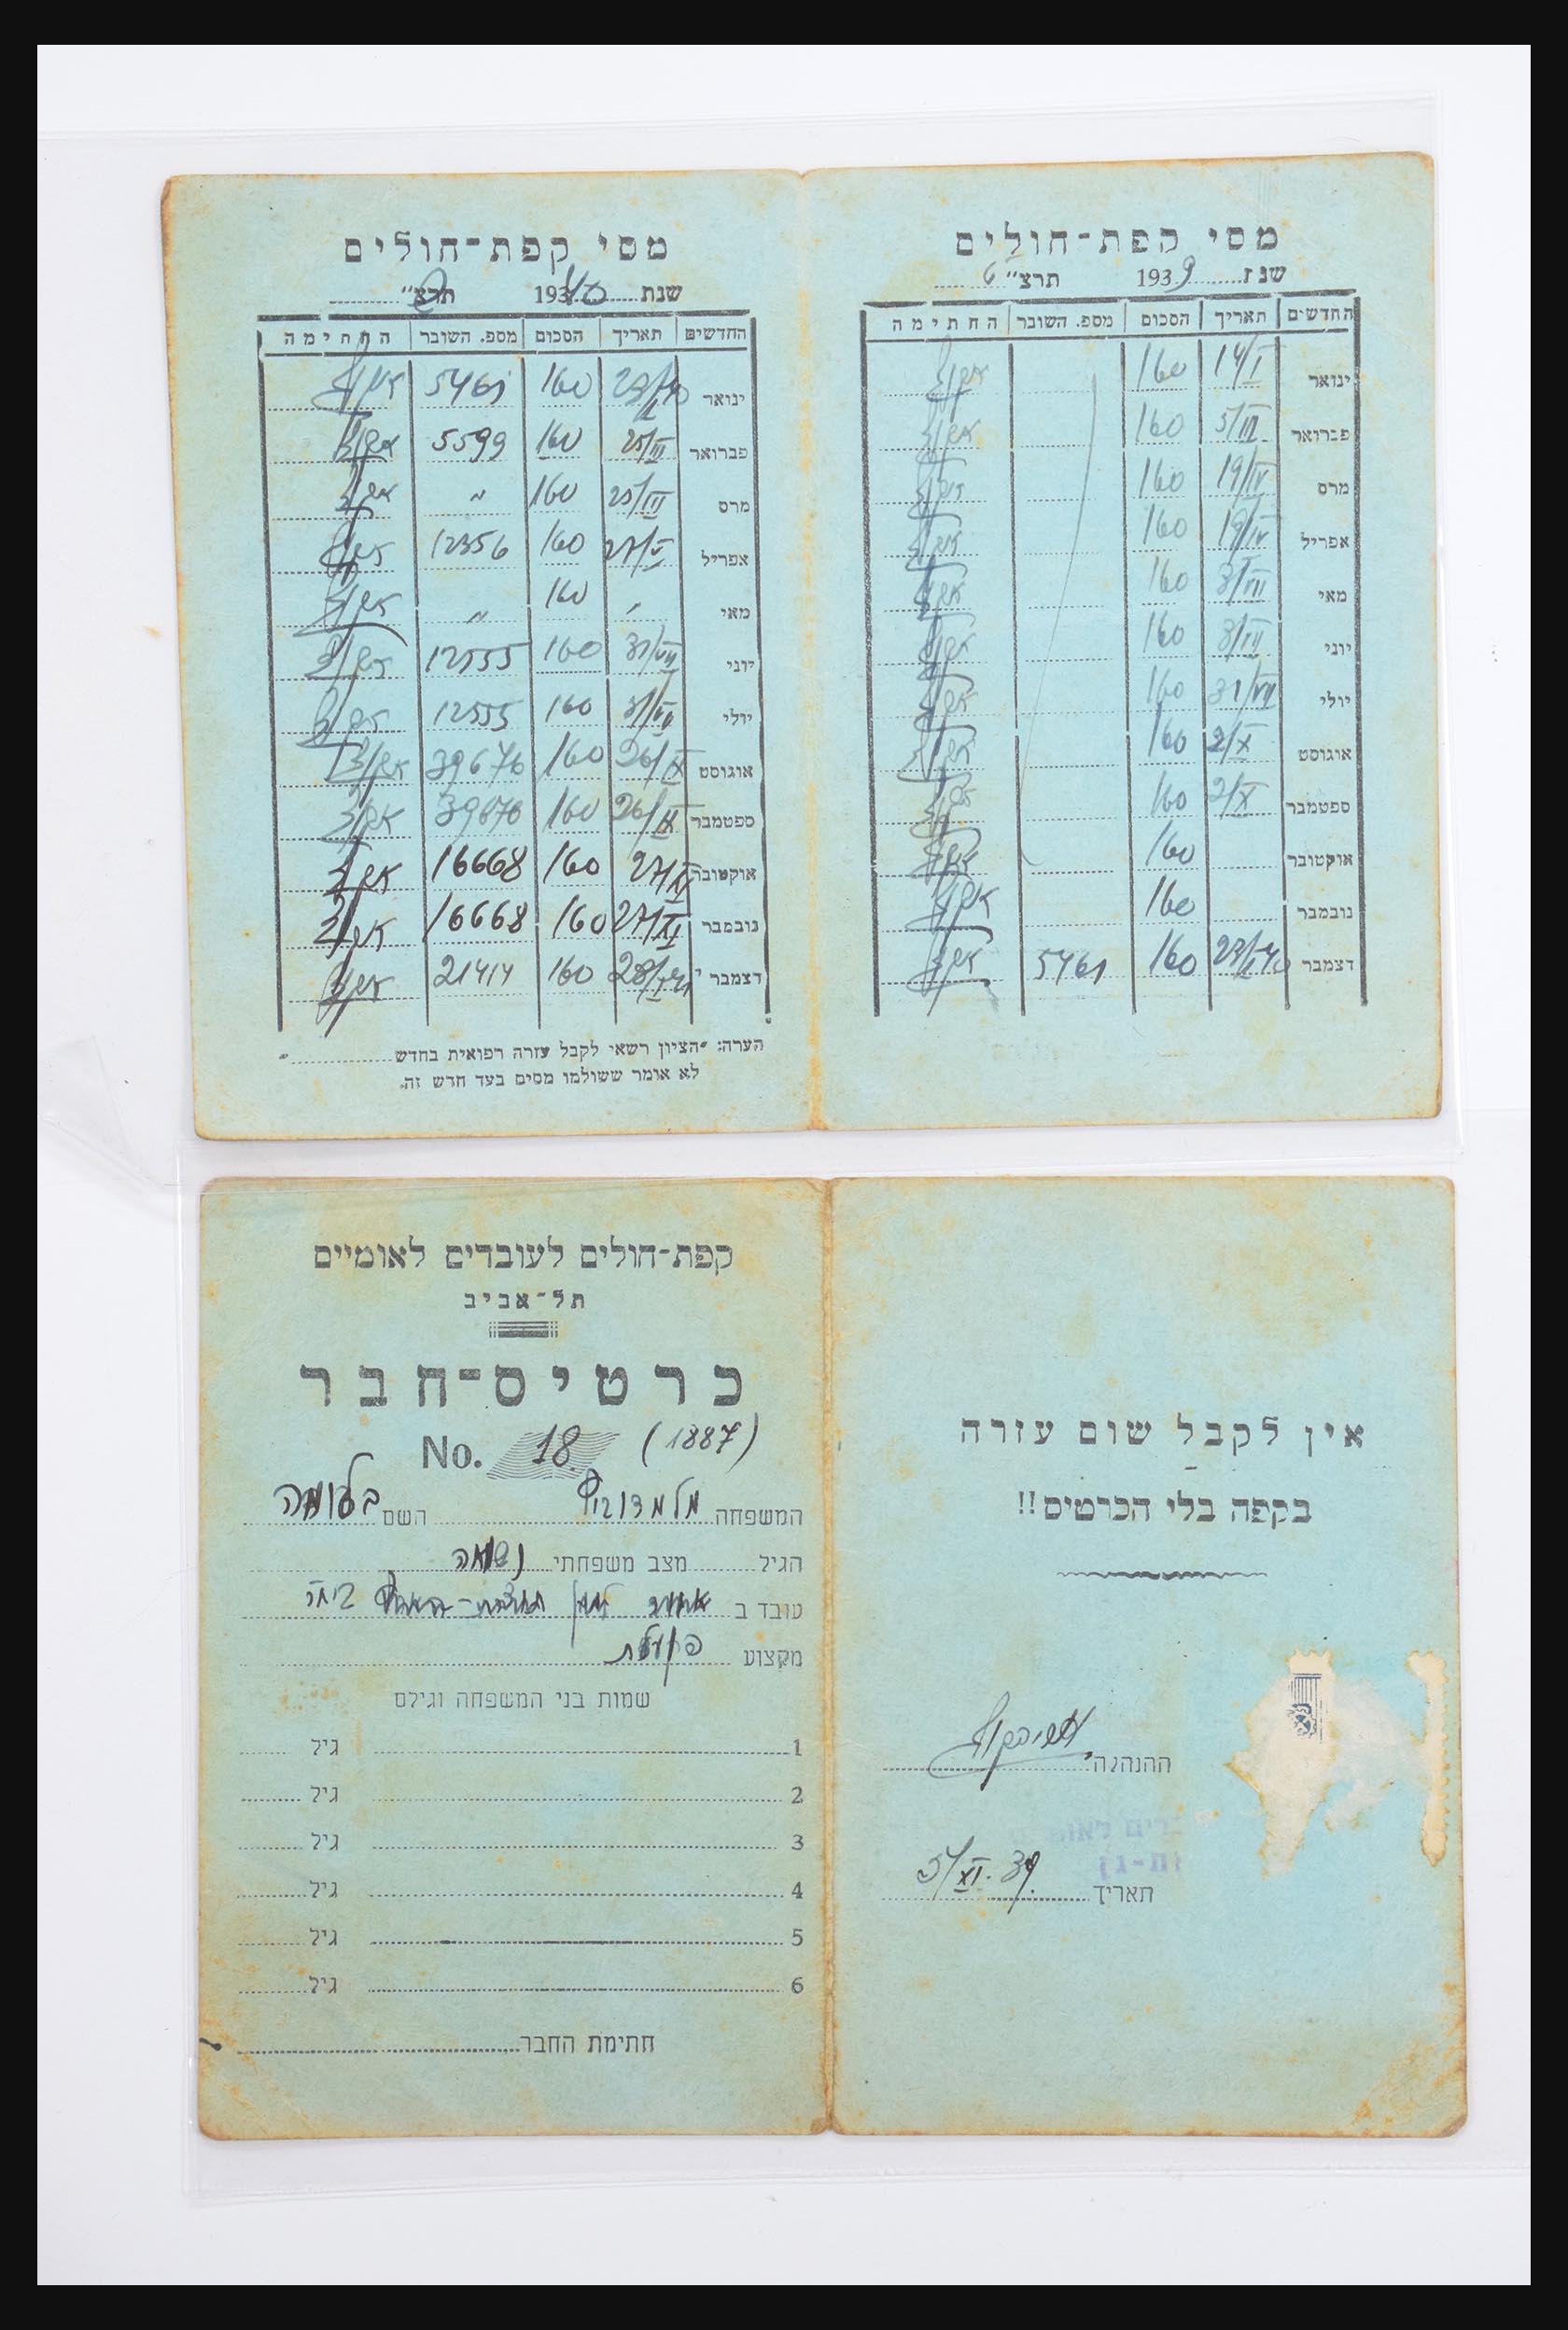 מסי קפת-חולים
שנת 1939 תרצ"ט
החדשים תאריך הסכום מספ. השובר החתימה
ינואר 14/I 160
פברואר 5/III 160
מרס 19/IV 160
אפריל 19/IV 160
מאי 3/VII 160
יוני 3/VII 160
יולי 31/VII 160
אוגוסט 2/X 160
ספטמבר 2/X 160
אוקטובר 160
נובמבר 160
דצמבר 23/I 40 160 5461
מסי קפת-חולים
שנת 1940 תרצ"
החדשים תאריך הסכום מספ. השובר החתימה
ינואר 23/I 40 160 5461
פברואר 25/III 160 5599
מרס 25/III 160 "
אפריל 27/V 160 12356
מאי " 160 "
יוני 31/VII 160 12555
יולי 31/VII 160 12555
אוגוסט 26/IX 160 39676
ספטמבר 26/IX 160 39676
אוקטובר 27/XI 160 16668
נובמבר 27/XI 160 16668
דצמבר 28/I 41 160 21414
הערה: "הציון רשאי לקבל עזרה רפואית בחדש "
לא אומר ששולמו מסים בעד חדש זה.
קפת-חולים לעובדים לאומיים
תל-אביב
כרטיס-חבר
No. 18 (1887)
המשפחה השם
הגיל מצב משפחתי נשואה
עובד ב
מקצוע פועלת
שמות בני המשפחה וגילם
1 גיל
2 גיל
3 גיל
4 גיל
5 גיל
6 גיל
חתימת החבר
אין לקבל שום עזרה
בקפה בלי הכרטיס!!
ההנהלה
דים לאומ
ת-גן
תאריך 5/XI. 39